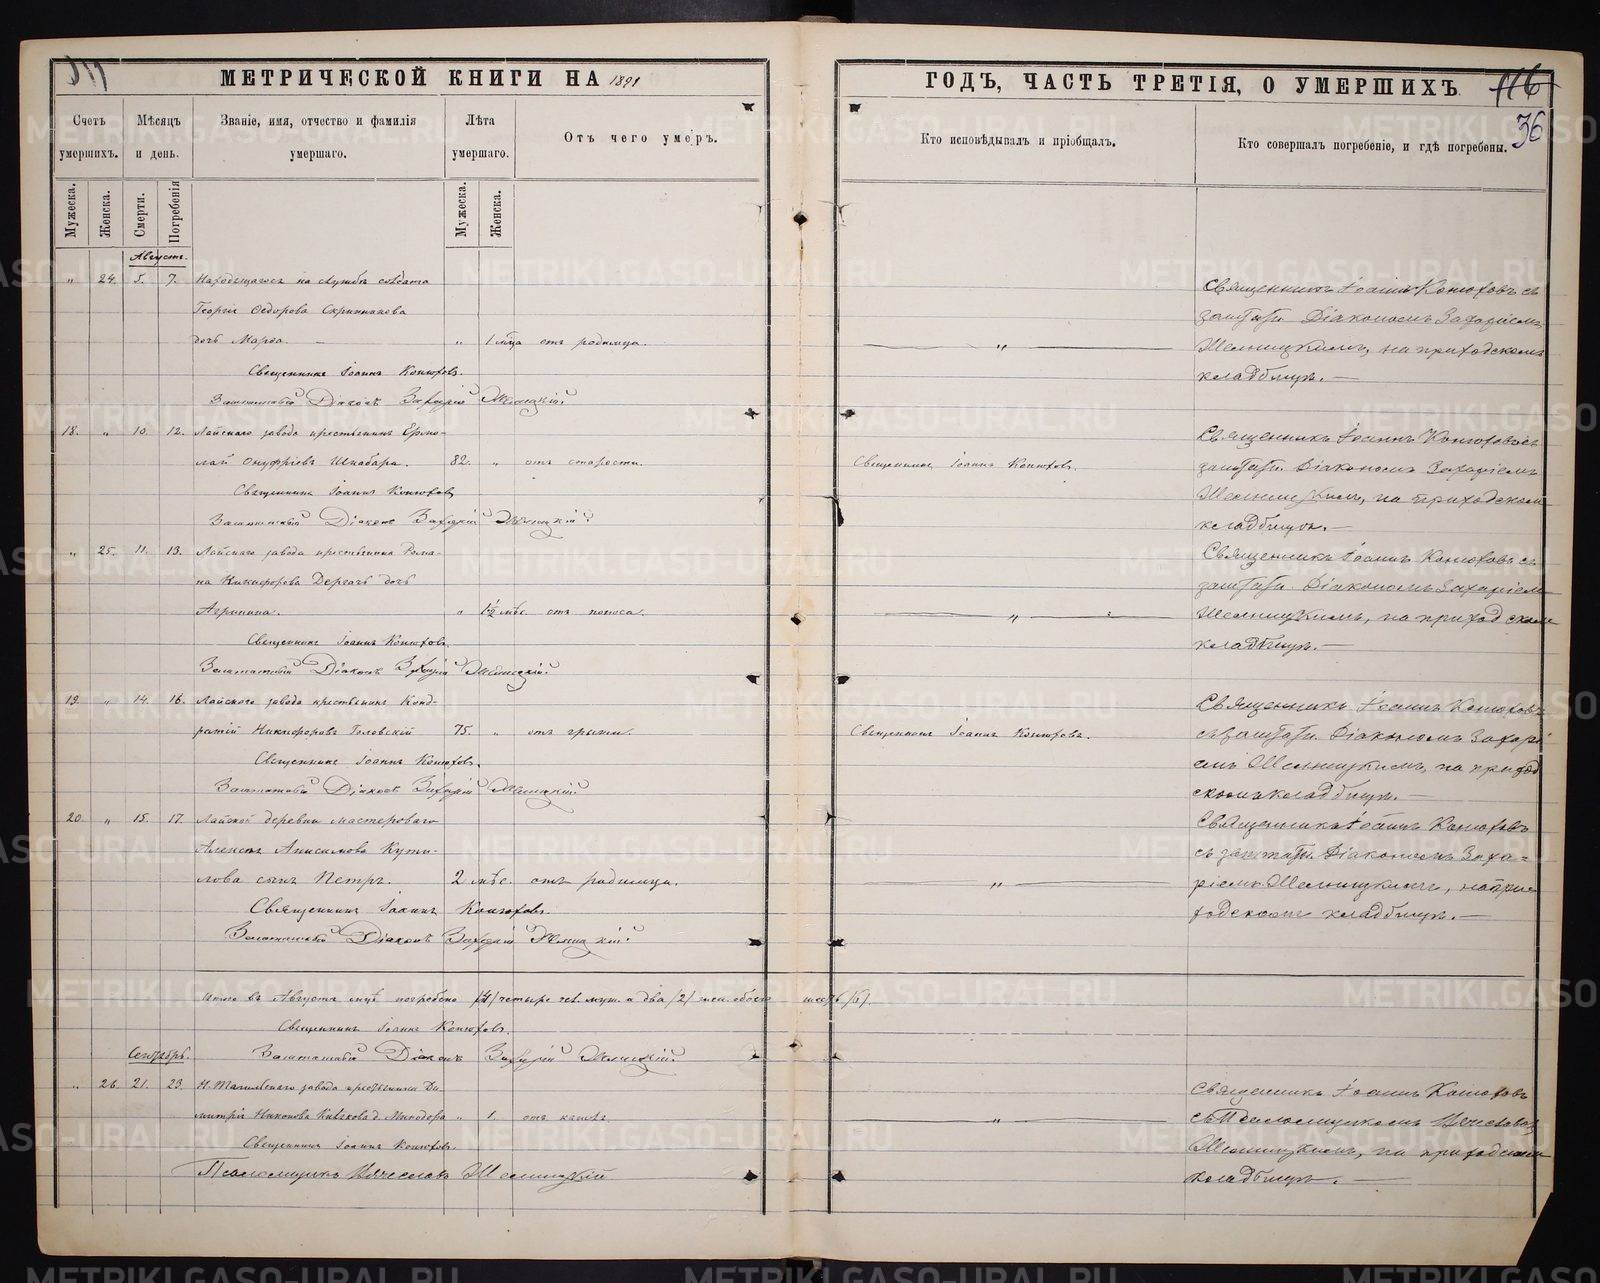 МЕТРИЧЕСКОЙ КНИГИ НА 1891
ГОДЪ, ЧАСТЬ ТРЕТІЯ, О УМЕРШИХЪ 116
36
Счетъ умершихъ.
Мѣсяцъ и день.
Званіе, имя, отчество и фамилія умершаго.
Лѣта умершаго.
Отъ чего умеръ.
Кто исповѣдывалъ и пріобщалъ.
Кто совершалъ погребеніе, и гдѣ погребены.
Мужеска.
Женска.
Смерти.
Погребенія
Мужеска.
Женска.
Августъ.
" 24. 5. 7. на службѣ солдата
Георгія Ѳедорова
дочь Марѳа. " 1 мца отъ родимца. "
Священникъ Іоаннъ Конюховъ.
Заштатный Діаконъ Захарій
Священникъ Іоаннъ Конюховъ съ
заштатн. Діакономъ Захаріемъ
на приходскомъ
кладбищѣ.
18. " 10. 12. Лайскаго завода крестьянинъ Ермо-
лай Онуфріевъ Шкабара. 82. " отъ старости. Священникъ Іоаннъ Конюховъ.
Священникъ Іоаннъ Конюховъ
Заштатный Діаконъ Захарій
Священникъ Іоаннъ Конюховъ съ
заштатн. Діакономъ Захаріемъ
на приходскомъ
кладбищѣ.
" 25. 11. 13. Лайскаго завода крестьянина Рома-
на Никифорова Дергачъ дочь
Агрипина. " 1½ мѣс. отъ поноса. "
Священникъ Іоаннъ Конюховъ.
Заштатный Діаконъ Захарій
Священникъ Іоаннъ Конюховъ съ
заштатн. Діакономъ Захаріемъ
на приходскомъ
кладбищѣ.
19. " 14. 16. Лайскаго завода крестьянинъ Конд-
ратій Никифоровъ Головскій 75. " отъ грыжи. Священникъ Іоаннъ Конюховъ.
Священникъ Іоаннъ Конюховъ.
Заштатный Діаконъ Захарій
Священникъ Іоаннъ Конюховъ
съ заштатн. Діакономъ Захарі
емъ на приход
скомъ кладбищѣ.
20. " 15. 17. Лайской деревни мастероваго
Алексѣя Анисимова Кути-
лова сынъ Петръ. 2 мѣс. отъ родимца. "
Священникъ Іоаннъ Конюховъ.
Заштатный Діаконъ Захарій
Священникъ Іоаннъ Конюховъ
съ заштатн. Діакономъ Заха-
ріемъ на при-
ходскомъ кладбищѣ.
Итого въ Августѣ мцѣ погребено /4/ четыре чел. муж. и два /2/ жен. обоего шесть /6/.
Священникъ Іоаннъ Конюховъ.
Заштатный Діаконъ Захарій
Сентябрь.
" 26. 21. 23. Н. Тагильскаго завода крестьянина Ди-
митрія Никонова д. Минодора " 1. отъ кашля. "
Священникъ Іоаннъ Конюховъ.
Псаломщикъ Вячеславъ
Священникъ Іоаннъ Конюховъ
съ Псаломщикомъ Вячеславом
на приходскомъ
кладбищѣ.
METRIKI.GASO-URAL.RU